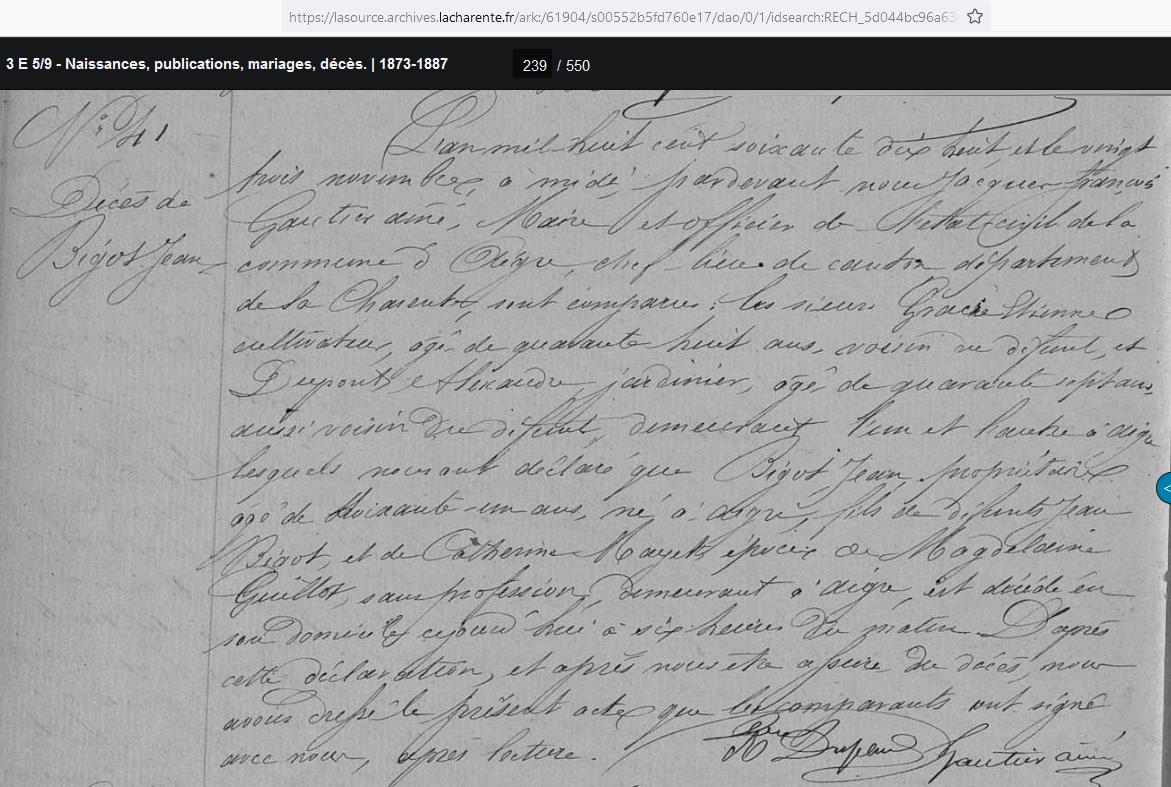 https://lasource.archives.lacharente.fr/ark:/61904/s00552b5fd760e17/dao/0/1/idsearch:RECH_5d044bc96a63
3 E 5/9 - Naissances, publications, mariages, décès. | 1873-1887
239 / 550
N° 41
Décès de
Bigot Jean
L'an mil huit cent soixante dix huit et le vingt
trois novembre, à midi, pardevant nous Jacques François
Gautier ainé, Maire et officier de l'état civil de la
commune d'Aigre, chef-lieu de canton département
de la Charente, sont comparus : les sieurs Gracié Etienne
cultivateur, âgé de quarante huit ans, voisin du défunt, et
Dupont Alexandre jardinier, âgé de quarante sept ans,
aussi voisin du défunt, demeurant l'un et l'autre à Aigre
lesquels nous ont déclaré que Bigot Jean, propriétaire
agé de soixante un ans, né à Aigre, fils de défunts Jean
Bigot, et de Catherine Mayet, époux de Magdelaine
Guillot, sans profession, demeurant à Aigre, est décédé en
son domicile cejourd'hui à six heures du matin. D'après
cette déclaration, et après nous être assuré du décès, nous
avons dressé le présent acte que les comparants ont signé
avec nous, après lecture.
Dupont Gautier ainé